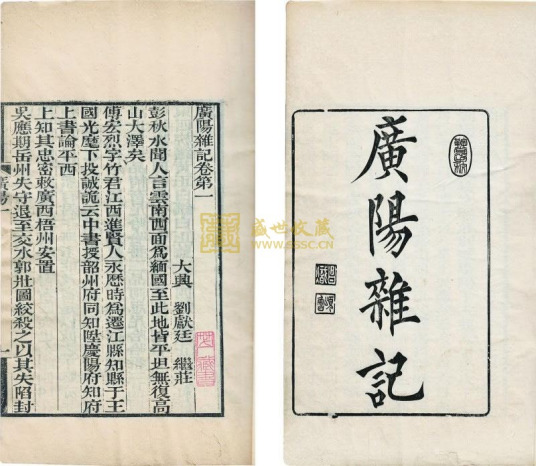 廣陽雜記
廣陽雜記卷第一
大興 劉獻廷 繼莊
彭秋水聞人言雲南西面爲緬國至此地皆平坦無復高
山大澤矣
傅宏烈字竹君江西進賢人永歷時爲遷江縣知縣于王
國光麾下投誠謊云中書授韶州府同知陞慶陽府知府
上書論平西
上知其忠密敕廣西梧州安置
吳應期岳州失守退至交水郭壯圖絞殺之以其失陷封
廣陽一
一
盛世收藏
www.sssc.cn